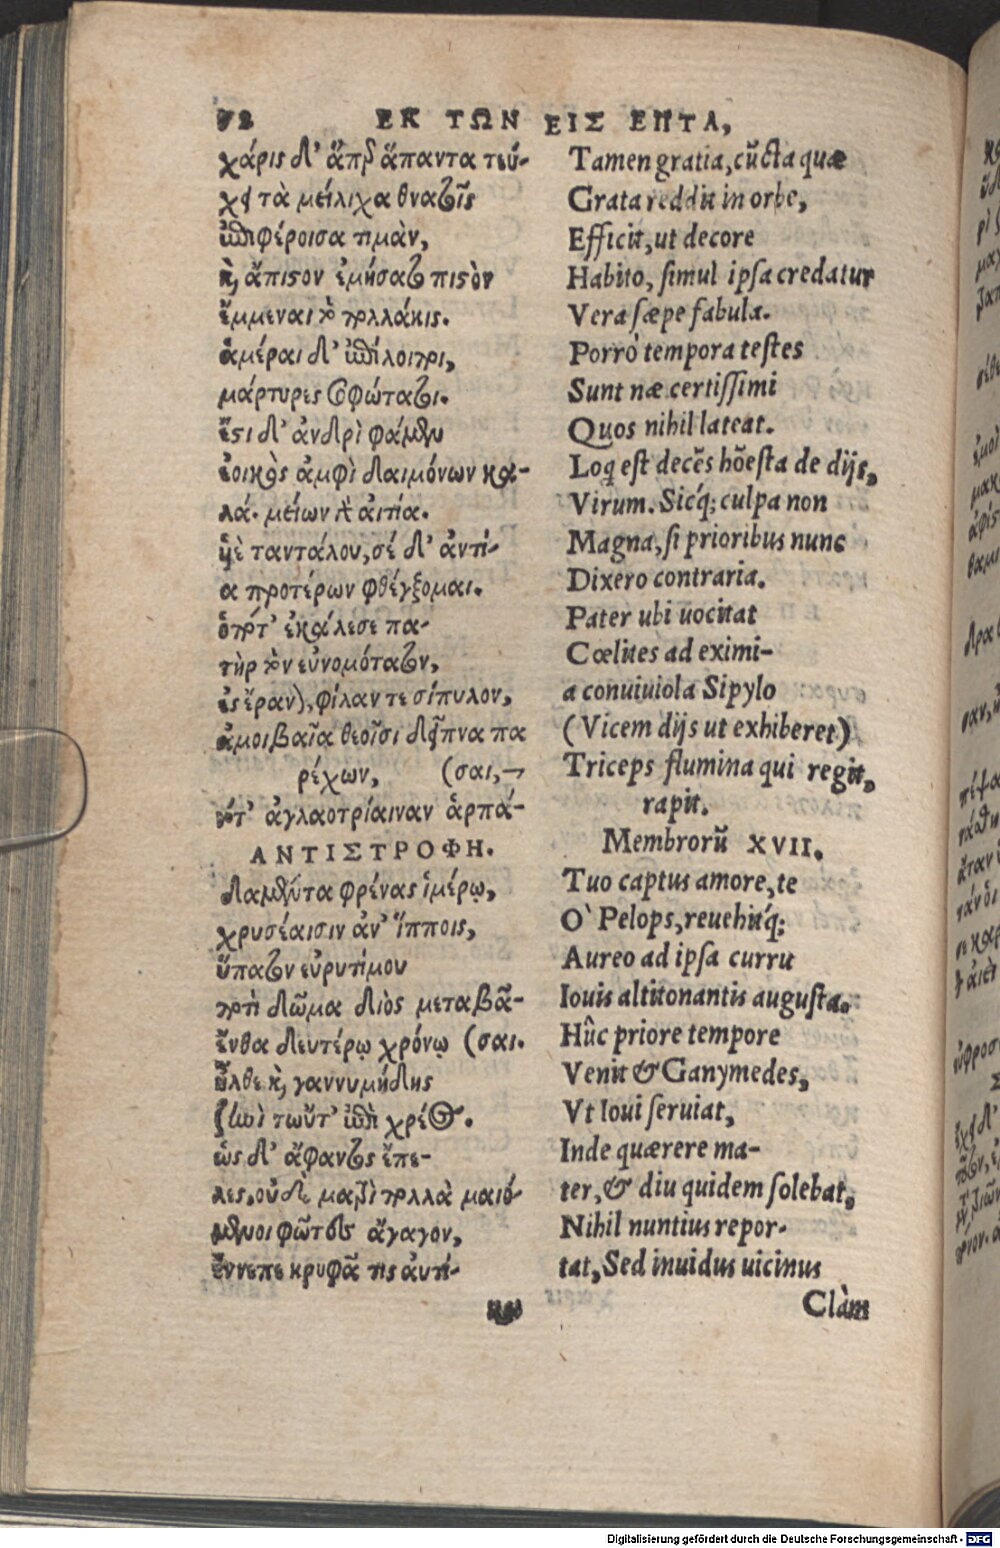 72 ΕΚ ΤΩΝ ΕΙΣ ΕΠΤΑ,
χάρις δ' ἅπερ ἅπαντα τεύ-
χει τὰ μείλιχα θνατοῖς
ἐπιφέροισα τιμὰν,
καὶ ἄπιστον ἐμήσατο πιστὸν
ἔμμεναι τὸ πολλάκις.
ἁμέραι δ' ἐπίλοιποι,
μάρτυρες σοφώτατοι.
ἔστι δ' ἀνδρὶ φάμεν
ἐοικὸς ἀμφὶ δαιμόνων κα-
λά. μείων γὰρ αἰτία.
υἱὲ ταντάλου, σέ δ' ἀντί-
α προτέρων φθέγξομαι.
ὁπότ' ἐκάλεσε πα-
τὴρ τὸν εὐνομότατον,
ἐς ἔρανον, φίλαν τε σίπυλον,
ἀμοιβαῖα θεοῖσι δεῖπνα πα
ρέχων, (σαι,
τότ' ἀγλαοτρίαιναν ἁρπά-
ΑΝΤΙΣΤΡΟΦΗ.
δαμέντα φρένας ἱμέρῳ,
χρυσέαισιν ἀν' ἵπποις,
ὕπατον εὐρυτίμου
ποτὶ δῶμα διὸς μεταβᾶ-
ἔνθα δευτέρῳ χρόνῳ (σαι.
ἦλθε καὶ γαννυμήδης
ζωὶ τωὔτ' ἐπὶ χρέος.
ὡς δ' ἄφαντος ἔπε-
λες, οὐδὲ ματρὶ πολλὰ μαιό-
μενοι φῶτες ἄγαγον,
ἔννεπε κρυφᾶ τις αὐτί-
κα
Tamen gratia, cũcta quæ
Grata reddit in orbe,
Efficit, ut decore
Habito, simul ipsa credatur
Vera sæpe fabula.
Porrò tempora testes
Sunt næ certissimi
Quos nihil lateat.
Loq est decẽs hõesta de dijs,
Virum. Sicq́; culpa non
Magna, si prioribus nunc
Dixero contraria.
Pater ubi uocitat
Cœlites ad eximi-
a conuiuiola Sipylo
(Vicem dijs ut exhiberet)
Triceps flumina qui regit,
rapit.
Membrorũ XVII.
Tuo captus amore, te
O' Pelops, reuehitq́;
Aureo ad ipsa curru
Iouis altitonantis augusta.
Hûc priore tempore
Venit & Ganymedes,
Vt Ioui seruiat,
Inde quærere ma-
ter, & diu quidem solebat,
Nihil nuntius repor-
tat, Sed inuidus uicinus
Clàm
Digitalisierung gefördert durch die Deutsche Forschungsgemeinschaft - DFG